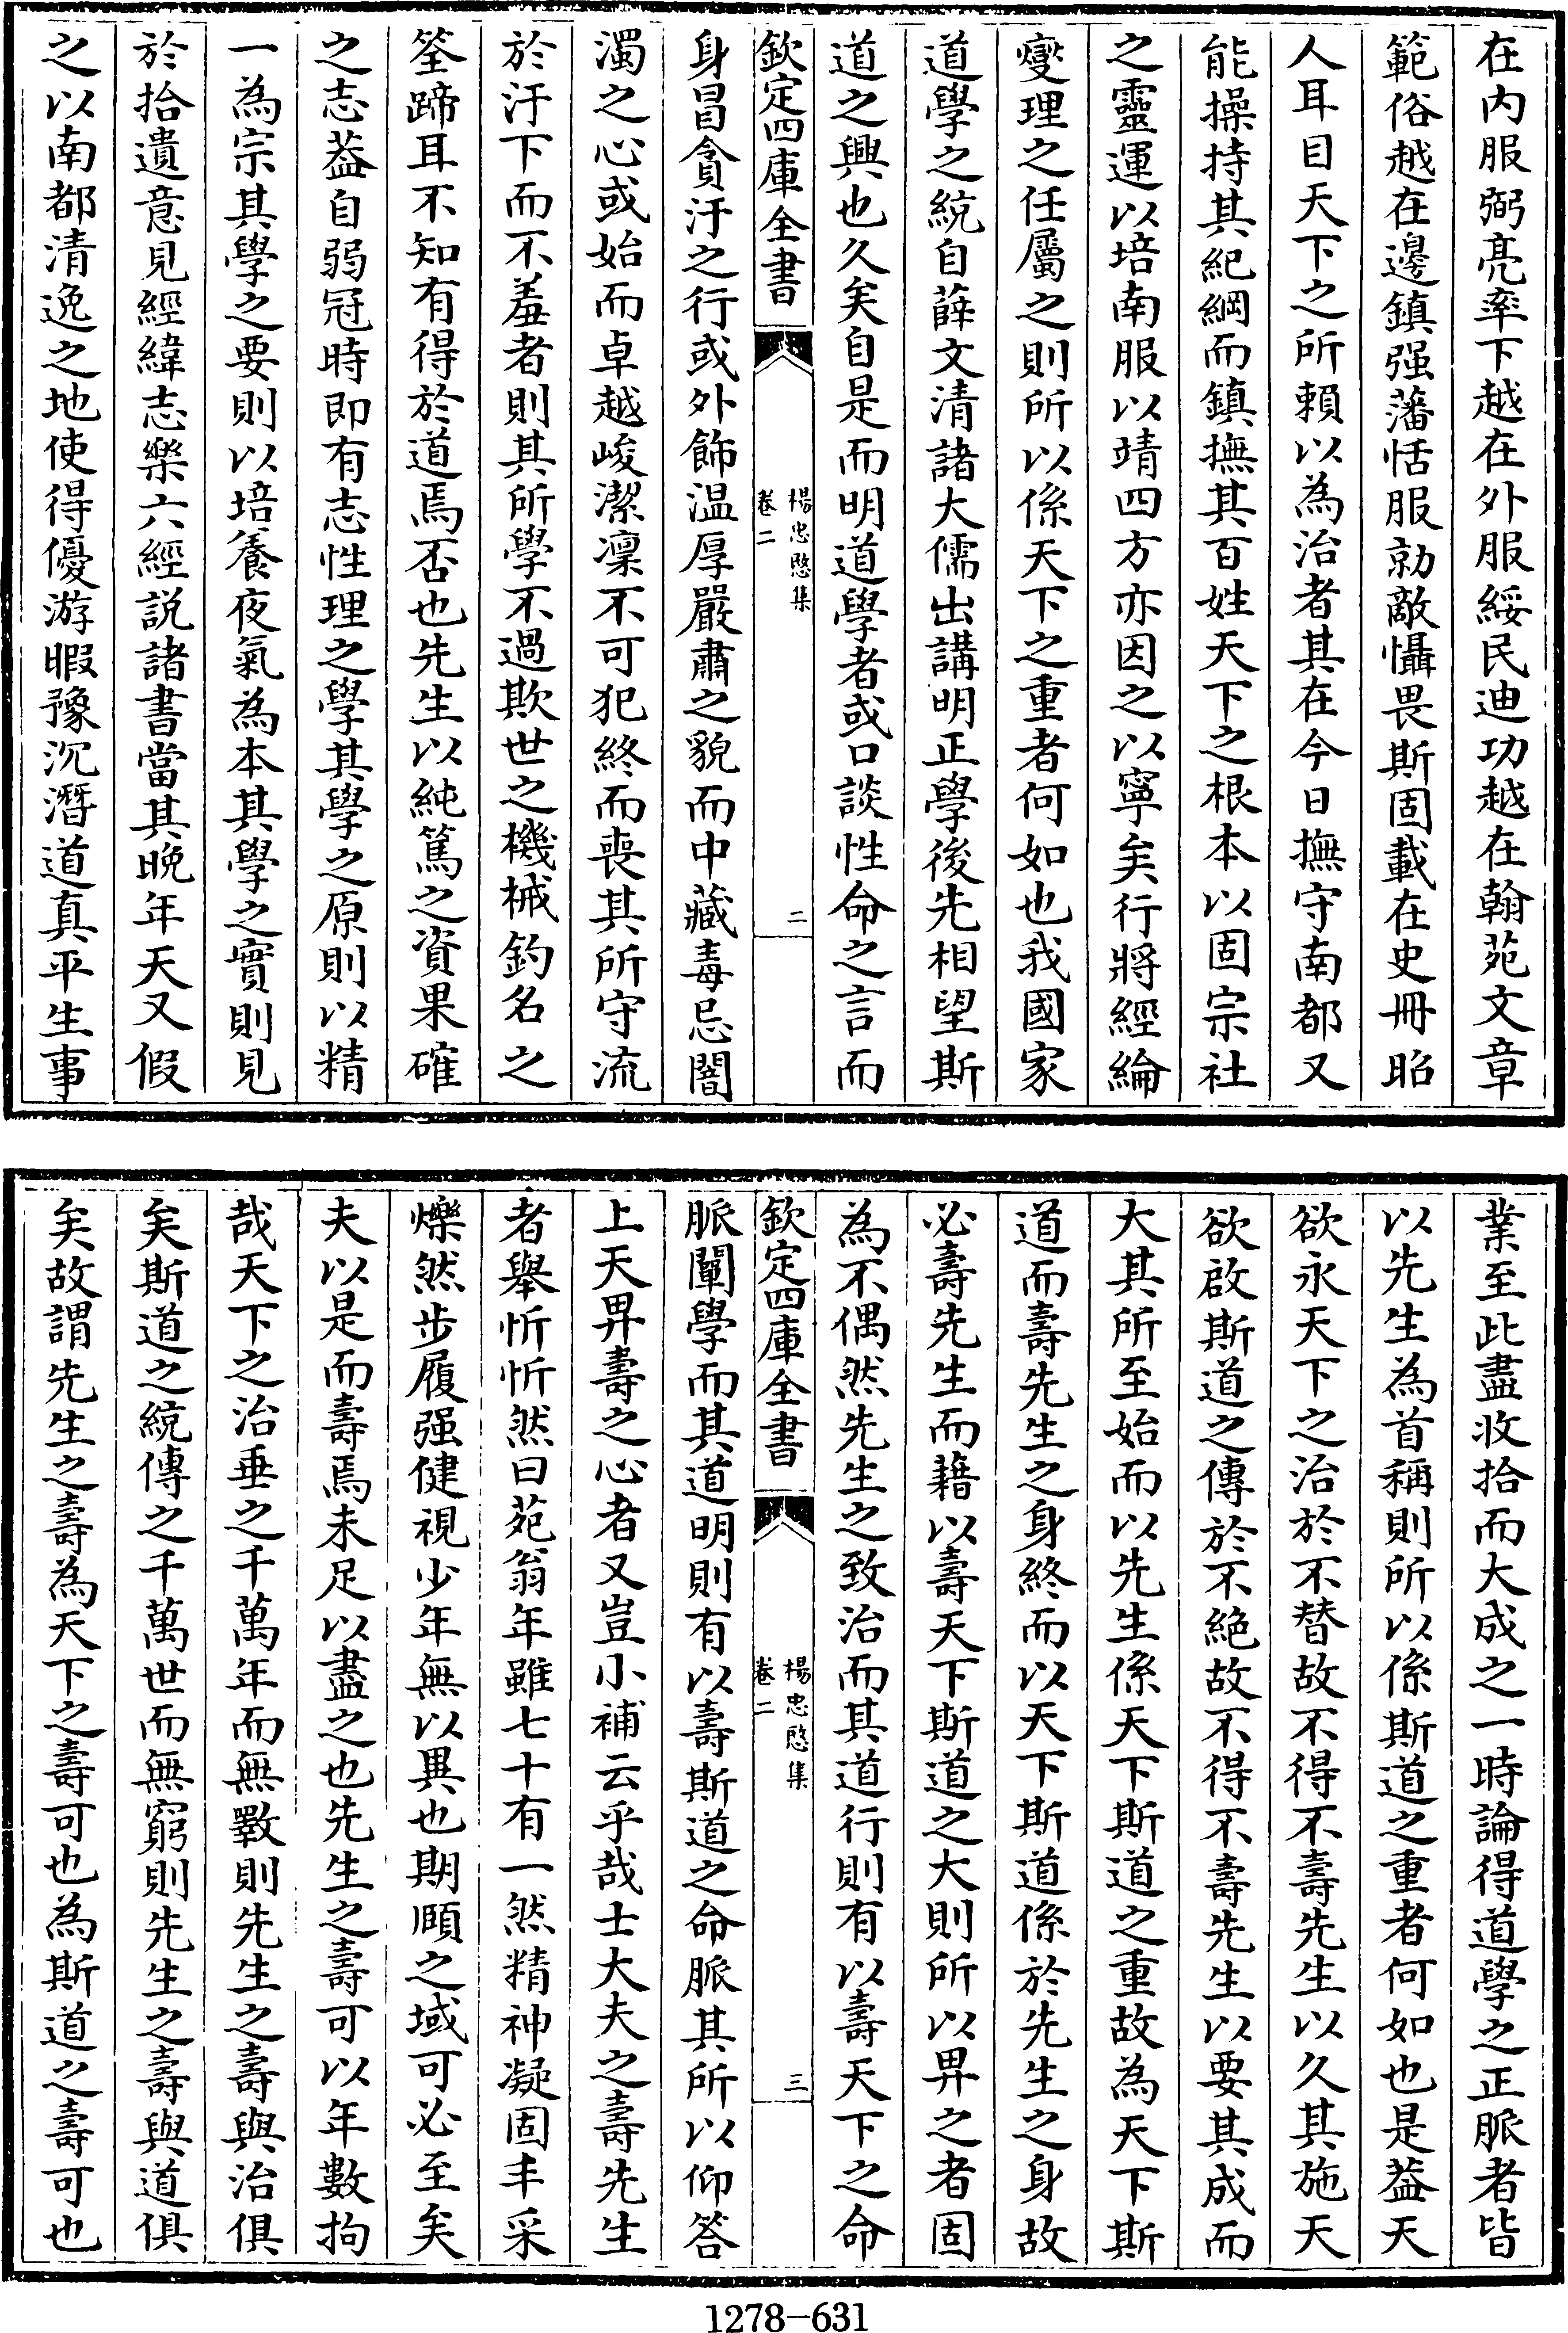 在内服弼亮率下越在外服綏民迪功越在翰苑文章
範俗越在邊鎮强藩恬服勍敵懾畏斯固載在史冊昭
人耳目天下之所頼以為治者其在今日撫守南都又
能操持其紀綱而鎮撫其百姓天下之根本以固宗社
之靈運以培南服以靖四方亦因之以寧矣行將經綸
燮理之任屬之則所以係天下之重者何如也我國家
道學之統自薛文清諸大儒出講明正學後先相望斯
道之興也久矣自是而明道學者或口談性命之言而
欽定四庫全書
楊忠愍集
卷二
二
身冒貪汙之行或外飾温厚嚴肅之貌而中藏毒忌闇
濁之心或始而卓越峻潔凛不可犯終而喪其所守流
於汙下而不羞者則其所學不過欺世之機械釣名之
筌蹄耳不知有得於道焉否也先生以純篤之資果確
之志葢自弱冠時即有志性理之學其學之原則以精
一為宗其學之要則以培養夜氣為本其學之實則見
於拾遺意見經緯志樂六經説諸書當其晚年天又假
之以南都清逸之地使得優游暇豫沉潛道真平生事
業至此盡收拾而大成之一時論得道學之正脈者皆
以先生為首稱則所以係斯道之重者何如也是葢天
欲永天下之治於不替故不得不壽先生以久其施天
欲啟斯道之傳於不絶故不得不壽先生以要其成而
大其所至始而以先生係天下斯道之重故為天下斯
道而壽先生之身終而以天下斯道係於先生之身故
必壽先生而藉以壽天下斯道之大則所以畀之者固
為不偶然先生之致治而其道行則有以壽天下之命
欽定四庫全書
楊忠愍集
卷二
三
脈闡學而其道明則有以壽斯道之命脈其所以仰答
上天畀壽之心者又豈小補云乎哉士大夫之壽先生
者舉忻忻然曰苑翁年雖七十有一然精神凝固丰采
爍然步履强健視少年無以異也期頤之域可必至矣
夫以是而壽焉未足以盡之也先生之壽可以年數拘
哉天下之治垂之千萬年而無斁則先生之壽與治俱
矣斯道之統傳之千萬世而無窮則先生之壽與道俱
矣故謂先生之壽為天下之壽可也為斯道之壽可也
1278-631